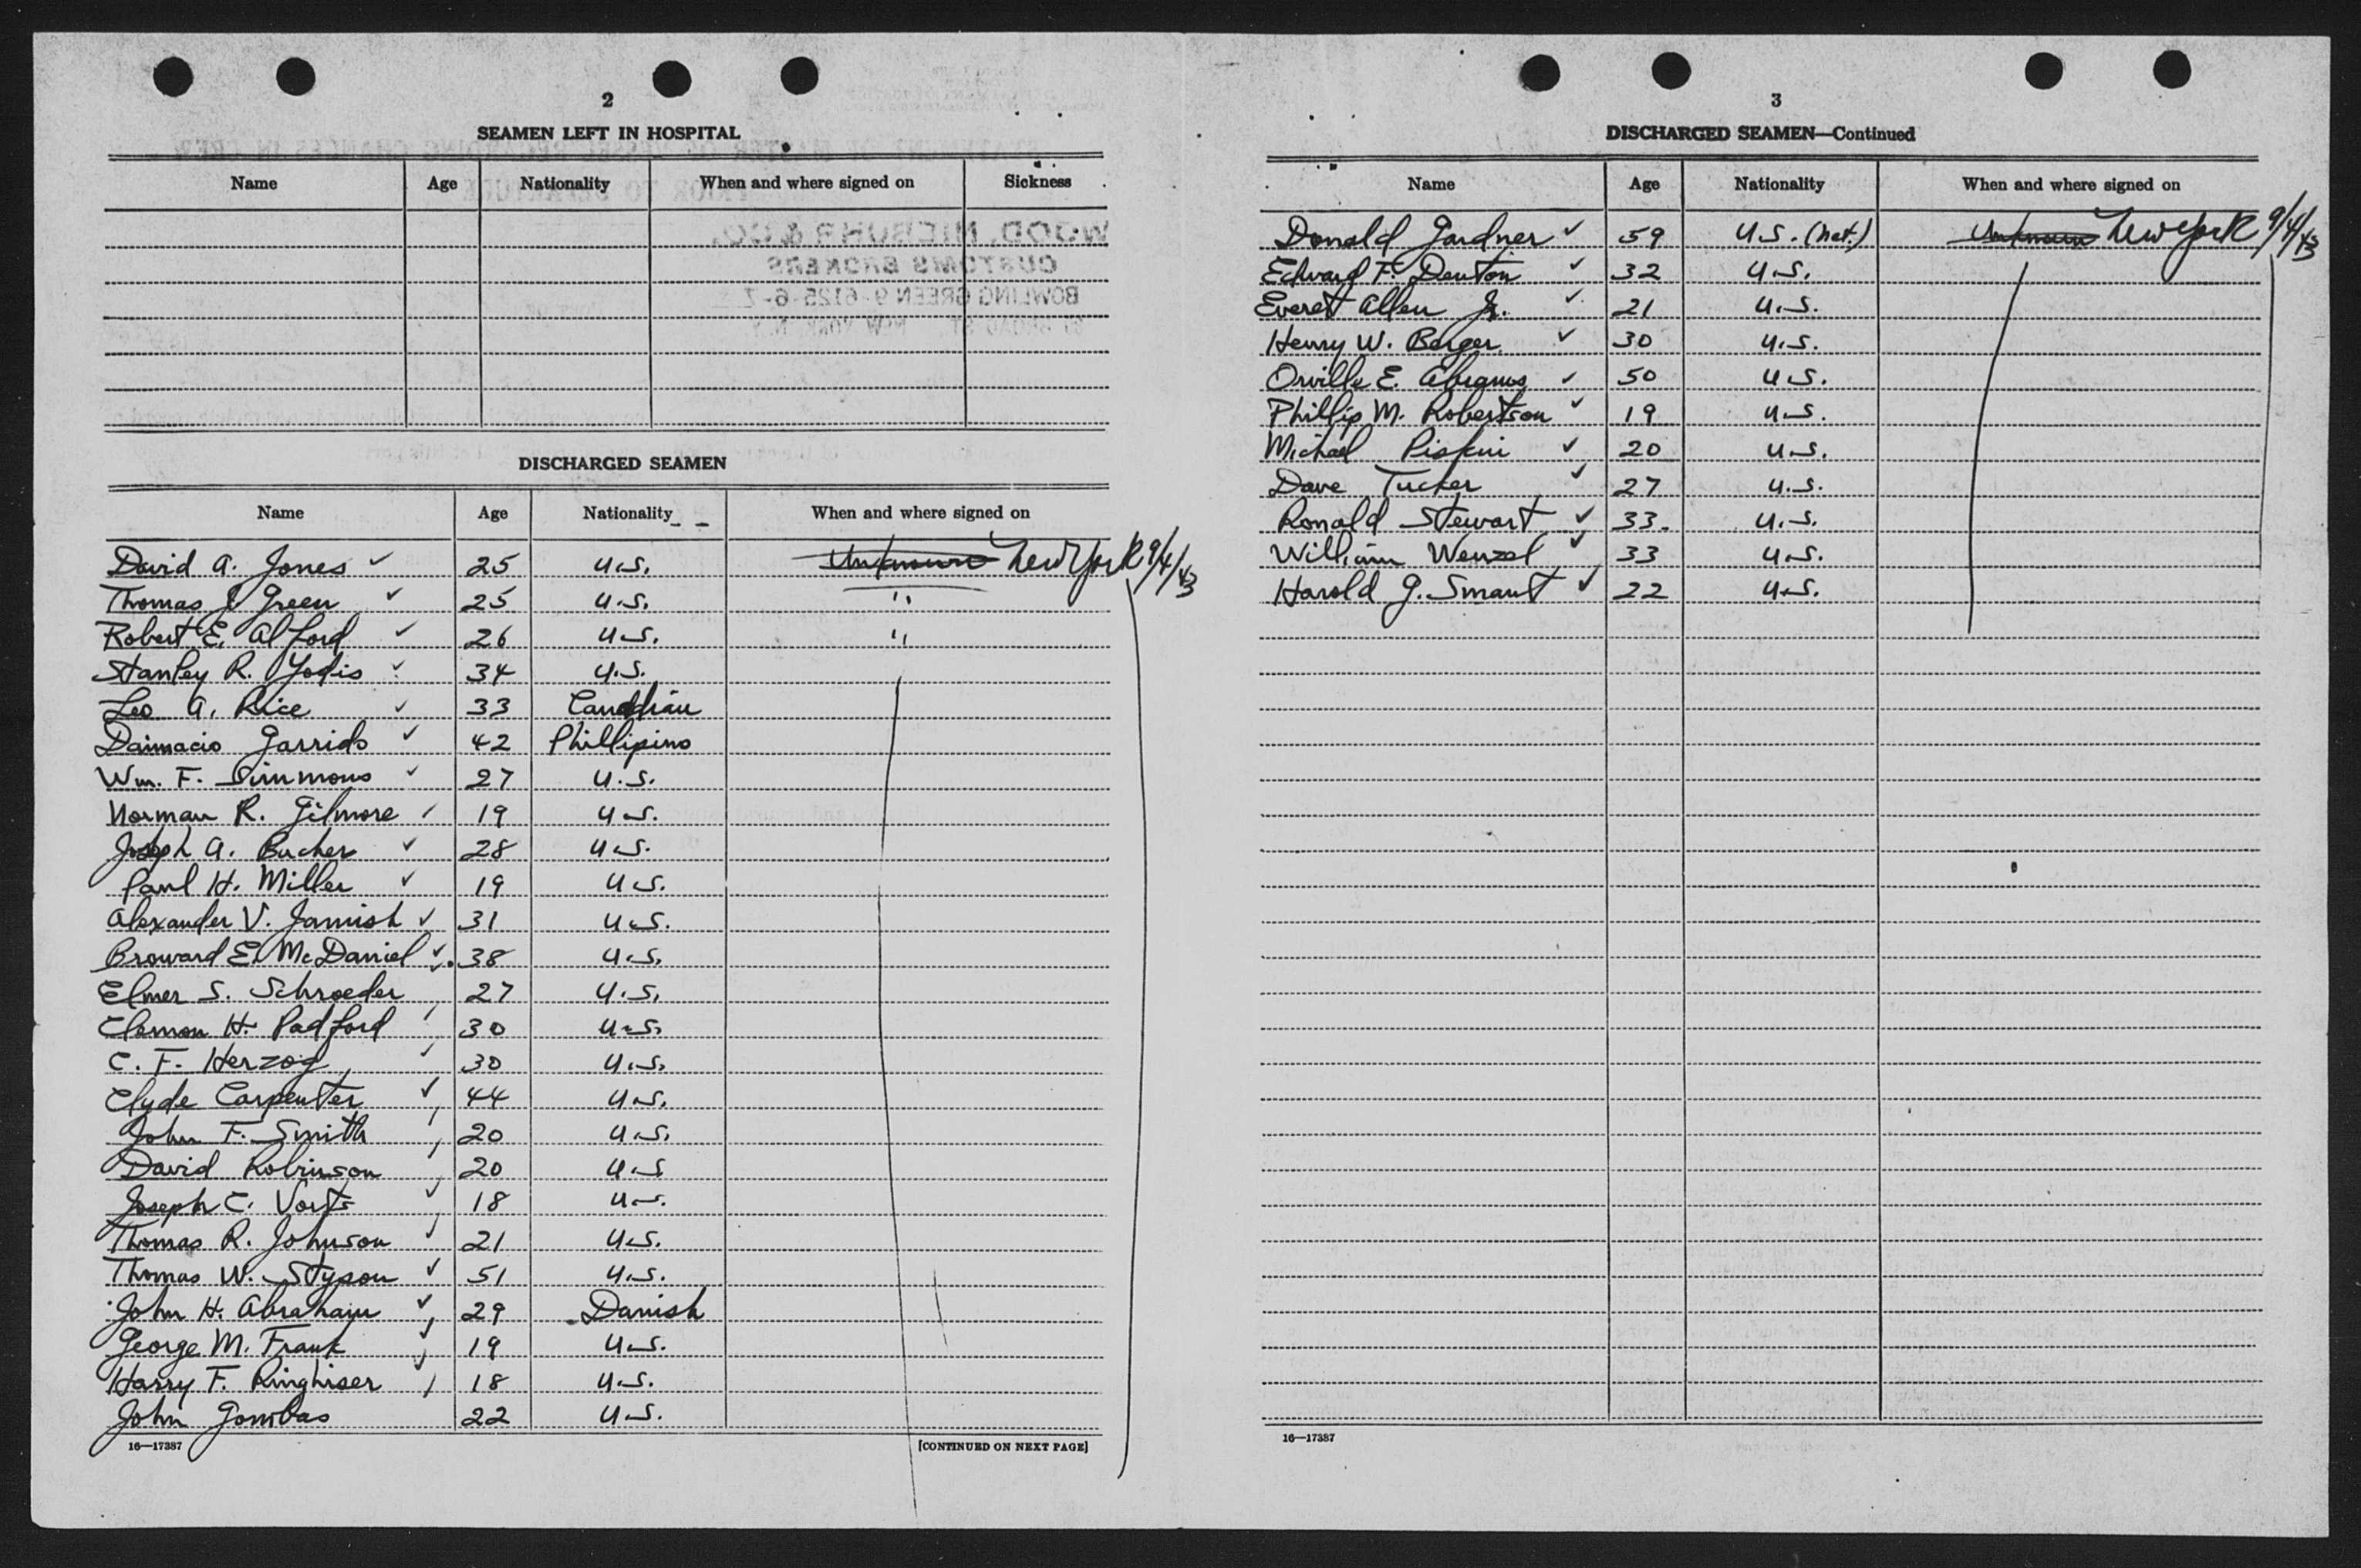 2
SEAMEN LEFT IN HOSPITAL
Name Age Nationality When and where signed on Sickness
DISCHARGED SEAMEN
Name Age Nationality When and where signed on
David A. Jones ✓ 25 U.S. Unknown New York 9/4/43
Thomas J. Green ✓ 25 U.S. "
Robert E. Alford ✓ 26 U.S. "
Stanley R. Yodis ✓ 34 U.S.
Leo A. Rice ✓ 33 Canadian
Daimacio Garrido ✓ 42 Phillipino
Wm. F. Simmons ✓ 27 U.S.
Norman R. Gilmore ✓ 19 U.S.
Joseph A. Bucher ✓ 28 U.S.
Paul H. Miller ✓ 19 U.S.
Alexander V. Jamish ✓ 31 U.S.
Broward E. McDaniel ✓ 38 U.S.
Elmer S. Schroeder 27 U.S.
Clemon H. Padford 30 U.S.
C. F. Herzog ✓ 30 U.S.
Clyde Carpenter ✓ 44 U.S.
John F. Smith 20 U.S.
David Robinson 20 U.S
Joseph C. Vorts ✓ 18 U.S.
Thomas R. Johnson 21 U.S.
Thomas W. Styson ✓ 51 U.S.
John H. Abraham ✓ 29 Danish
George M. Frank ✓ 19 U.S.
Harry F. Ringhiser ✓ 18 U.S.
John Gombas 22 U.S.
16—17387 [CONTINUED ON NEXT PAGE]
3
DISCHARGED SEAMEN—Continued
Name Age Nationality When and where signed on
Donald Gardner ✓ 59 U.S. (Nat.) Unknown New York 9/4/43
Edward F. Denton ✓ 32 U.S.
Everet Allen Jr. ✓ 21 U.S.
Henry W. Berger ✓ 30 U.S.
Orville E. Abrams ✓ 50 U.S.
Phillip M. Robertson ✓ 19 U.S.
Michael Piskui ✓ 20 U.S.
Dave Tucker ✓ 27 U.S.
Ronald Stewart ✓ 33. U.S.
William Wenzel ✓ 33 U.S.
Harold G. Smaut ✓ 22 U.S.
16—17387